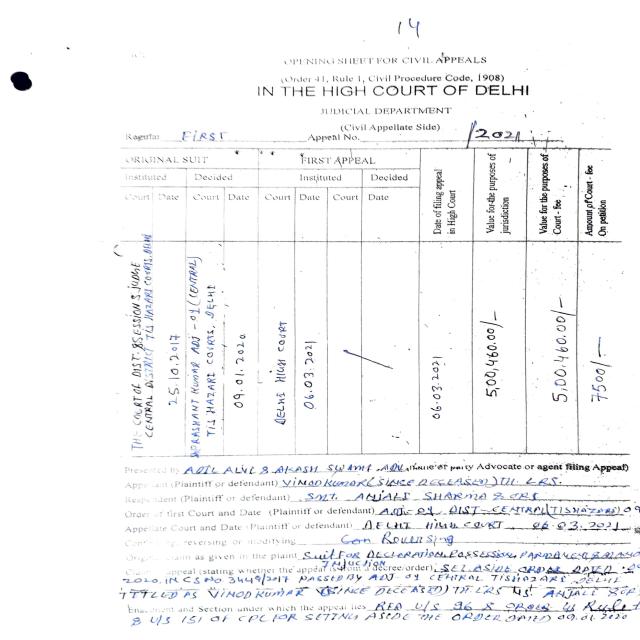 14
OPENING SHEET FOR CIVIL APPEALS
(Order 41, Rule 1, Civil Procedure Code, 1908)
IN THE HIGH COURT OF DELHI
JUDICIAL DEPARTMENT
(Civil Appellate Side)
Regular FIRST Appeal No. /2021
ORIGINAL SUIT FIRST APPEAL
Instituted Decided Instituted Decided
Court Date Court Date Court Date Court Date
Date of filing appeal in High Court
Value for the purposes of jurisdiction
Value for the purposes of Court - fee
Amount of Court - fee On petition
THE COURT OF DIST. & SESSIONS JUDGE
CENTRAL DISTRICT TIS HAZARI COURTS, DELHI
25.10.2017
KUMAR ADJ-01 (CENTRAL)
TIS HAZARI COURTS, DELHI
09.01.2020
DELHI HIGH COURT
06.03.2021
06.03.2021
5,00,460.00/-
5,00,460.00/-
7500/-
Presented by ADIL ALVI & AKASH SWAMI ADV. (Name of party Advocate or agent filing Appeal)
Appellant (Plaintiff or defendant) VINOD KUMAR (SINCE DECEASED) TH. LRS.
Respondent (Plaintiff or defendant) SMT. ANJALI SHARMA & ORS
Order of first Court and Date (Plaintiff or defendant) ADJ-01, DIST-CENTRAL (TIS HAZARI) 09
Appellate Court and Date (Plaintiff or defendant) DELHI HIGH COURT, 06.03.2021
Confirming, reversing or modifying
claim as given in the plaint SUIT FOR DECLARATION, POSSESSION,
INJUNCTION
(stating whether the appeal is from a decree/order) SET ASIDE ORDER DATED
2020. IN CS NO 3449/2017 PASSED BY ADJ-01 CENTRAL TIS HAZARI DELHI
TITLED AS VINOD KUMAR (SINCE DECEASED) TH LRS VS ANJALI
Enactment and Section under which the appeal lies RFA U/S 96 & ORDER 41 Rule 1
& U/S 151 OF CPC FOR SETTING ASIDE THE ORDER DATED 09.01.2020